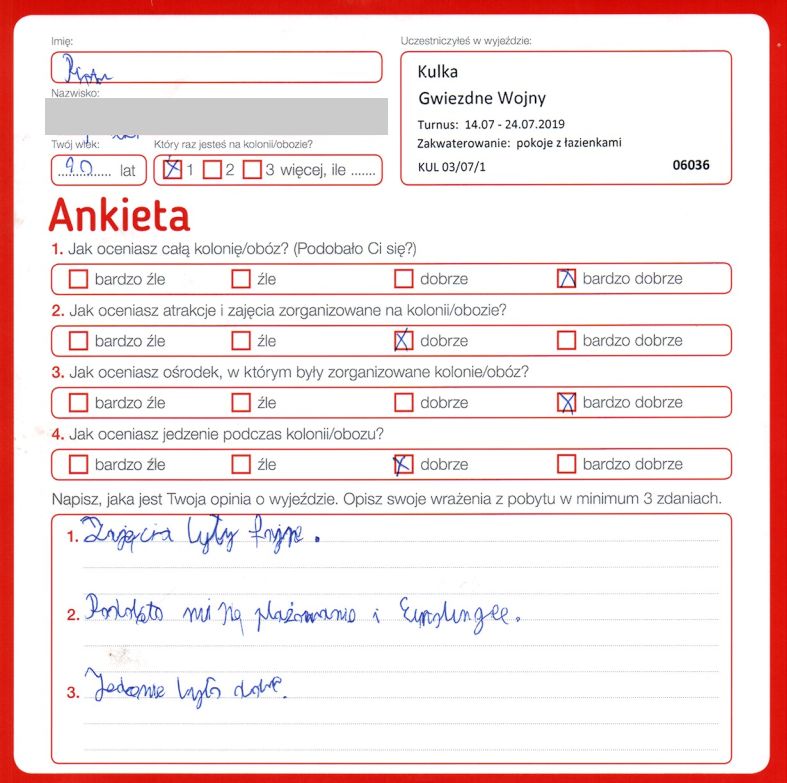 Imię:
Piotr
Nazwisko:
Twój wiek:
10 lat
Który raz jesteś na kolonii/obozie?
1 2 3 więcej, ile .......
Uczestniczyłeś w wyjeździe:
Kulka
Gwiezdne Wojny
Turnus: 14.07 - 24.07.2019
Zakwaterowanie: pokoje z łazienkami
KUL 03/07/1 06036
Ankieta
1. Jak oceniasz całą kolonię/obóz? (Podobało Ci się?)
bardzo źle źle dobrze bardzo dobrze
2. Jak oceniasz atrakcje i zajęcia zorganizowane na kolonii/obozie?
bardzo źle źle dobrze bardzo dobrze
3. Jak oceniasz ośrodek, w którym były zorganizowane kolonie/obóz?
bardzo źle źle dobrze bardzo dobrze
4. Jak oceniasz jedzenie podczas kolonii/obozu?
bardzo źle źle dobrze bardzo dobrze
Napisz, jaka jest Twoja opinia o wyjeździe. Opisz swoje wrażenia z pobytu w minimum 3 zdaniach.
1. Zajęcia były fajne.
2. mi się plażowanie i
3. Jedzenie było dobre.